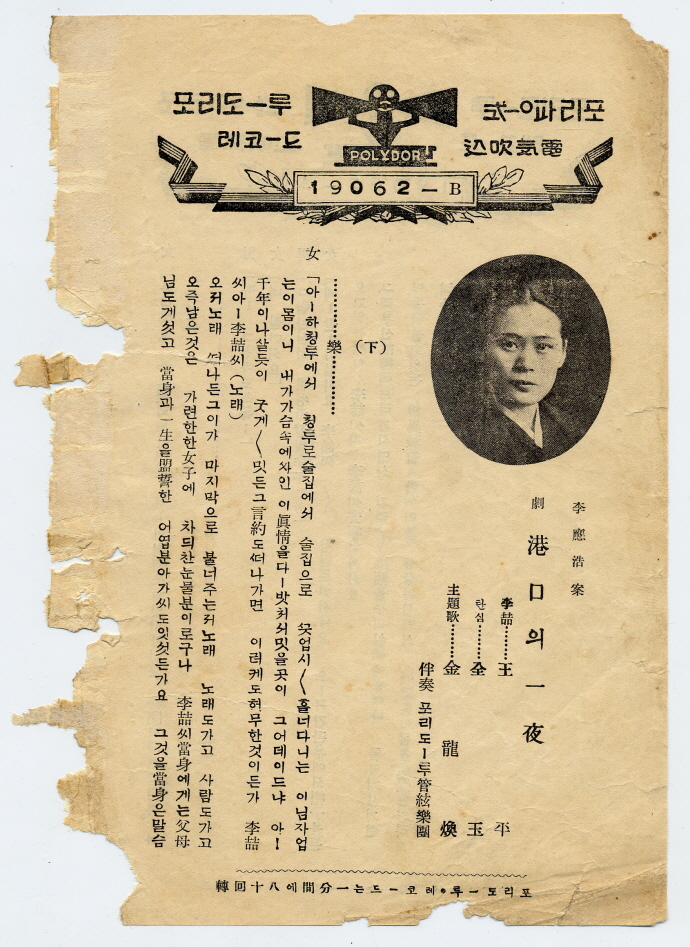 포리도ー루
레코ー드
電氣吹込
POLYDOR
19062-B
李應浩 案
劇 港口의 一夜
李喆………王 平
탄심………全 玉
主題歌………金 龍 煥
伴奏 포리도ー루管絃樂團
(下)
………………樂………………
女 「아ー하청루에서 청루로술집에서 술집으로 끗업시〳〵흘너다니는 이님자업
는이몸이니 내가가슴속에차인 이眞情을다ー밧처서밋을곳이 그어데이드냐 아ー
千年이나살듯이 굿게〳〵밋든그言約도떠나가면 이러케도허무한것이든가 李喆
씨아ー李喆씨 (노래)
오커노래 떠나든그이가 마지막으로 불너주는커노래 노래도가고 사람도가고
오즉남은것은 가련한한女子에 차듸찬눈물분이로구나 李喆씨當身에게는父母
님도게섯고 當身과一生을盟誓한 어엽분아가씨도잇섯든가요 그것을當身은말슴
포리도ー루레코ー드는一分間에八十回轉